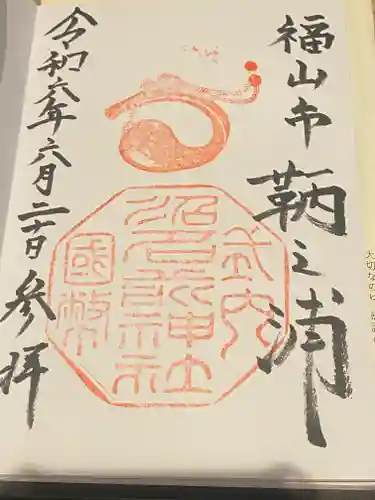 福山市 鞆之浦
式内
沼名前神社
國幣
令和六年六月二十日 参拝